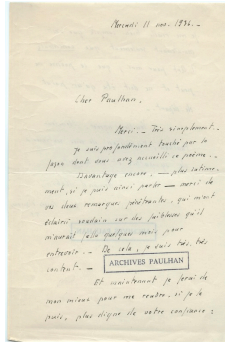 Mercredi 11 nov. 1936. _
Cher Paulhan,
Merci. _ Très simplement. _
Je suis profondément touché par la
façon dont vous avez accueilli ce poème. _
Davantage encore, _ plus intime,
ment, si je puis ainsi parler _ merci de
vos deux remarques pénétrantes, qui m'ont
éclairé soudain sur des faiblesses qu'il
m'aurait fallu quelques mois pour
entrevoir. _ De cela, je suis très, très
content. _
ARCHIVES PAULHAN
Et maintenant je ferai de
mon mieux pour me rendre, si je le
puis, plus digne de votre confiance :